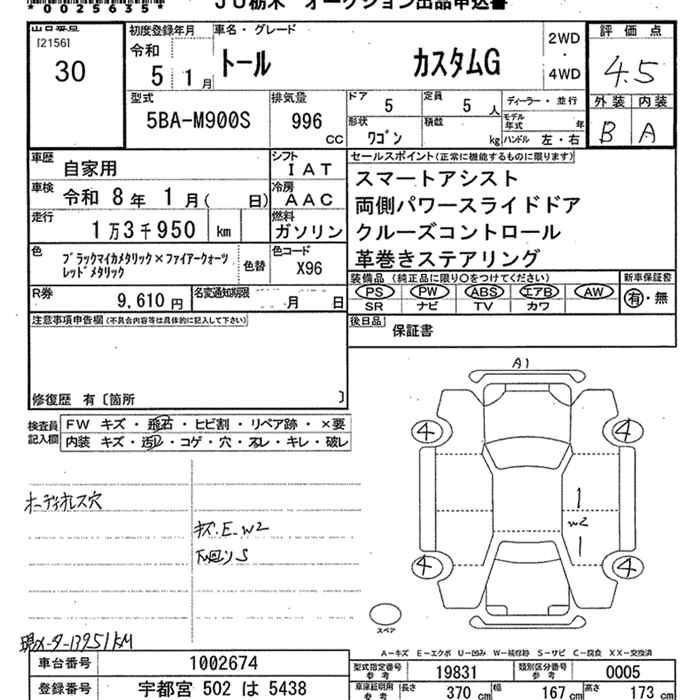 *0025635*
JU栃木 オークション出品申込書
出品番号
[2156]
30
初度登録年月
令和
5 1月
車名・グレード
トール カスタムG
2WD
・
4WD
評価点
4.5
外装 内装
B A
型式
5BA-M900S
排気量
996
CC
ドア
5
定員
5 人
ディーラー・並行
形状
ワゴン
積載
kg
モデル年式 年
ハンドル 左・右
車歴
自家用
シフト
IAT
車検
令和 8年 1月( 日)
冷房
AAC
走行
1万3千950 km
燃料
ガソリン
色
ブラックマイカメタリック×ファイアークォーツ
レッドメタリック
色替
色コード
X96
R券
9,610円
名変通知期限
月 日
セールスポイント(正常に機能するものに限ります)
スマートアシスト
両側パワースライドドア
クルーズコントロール
革巻きステアリング
装備品 (純正品に限り○をつけてください)
PS PW ABS エアB AW
SR ナビ TV カワ
新車保証書
有・無
後日品
保証書
注意事項申告欄(不具合内容等は具体的に記入して下さい)
修復歴 有〔箇所 〕
検査員
記入欄
FW キズ・飛石・ヒビ割・リペア跡・×要
内装 キズ・汚レ・コゲ・穴・スレ・キレ・破レ
オーディオレス穴
キズ.E.W2
下回りS
現メーター13951KM
A1
4
4
W2
4
4
スペア
A-キズ E-エクボ U-凹み W-補修跡 S-サビ C-腐食 XX-交換済
車台番号
1002674
登録番号
宇都宮 502 は 5438
型式指定番号
参考
19831
類別区分番号
参考
0005
車庫証明用
参考
長さ
370 cm
幅
167 cm
高さ
173 cm